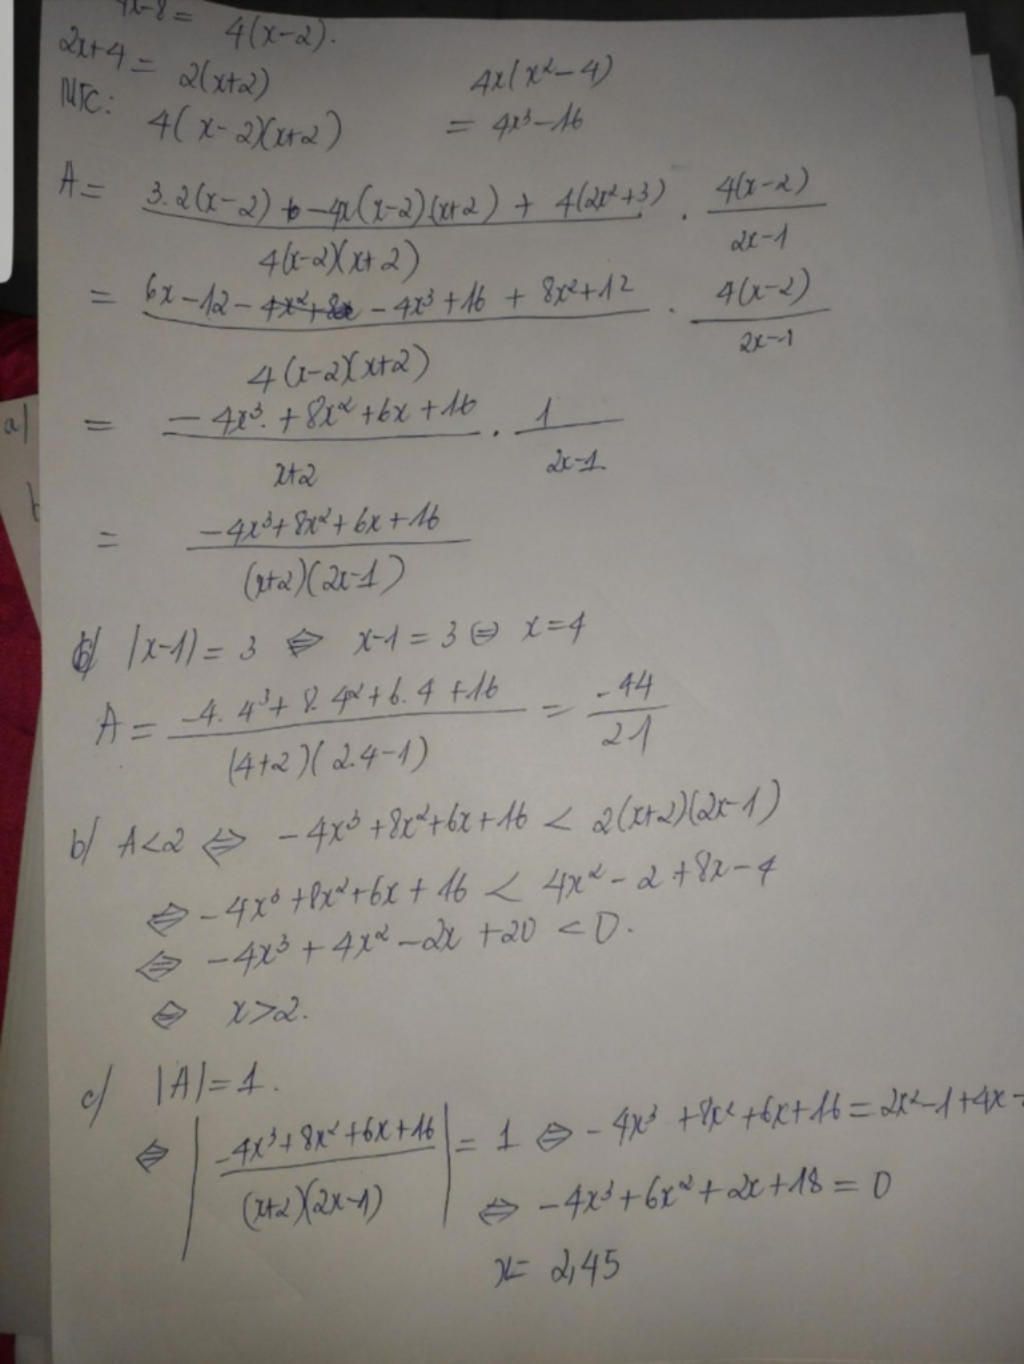 4x-8 = 4(x-2).
2x+4 = 2(x+2)
4x(x²-4)
MTC: 4(x-2)(x+2)
= 4x³-16
A = (3.2(x-2) + -4x(x-2).(x+2) + 4(2x²+3))/(4(x-2)(x+2)) . (4(x-2))/(2x-1)
= (6x-12 - 4x²+8x - 4x³+16 + 8x²+12)/(4(x-2)(x+2)) . (4(x-2))/(2x-1)
= (-4x³.+8x²+6x+16)/(x+2) . 1/(2x-1)
a)
= (-4x³+8x²+6x+16)/((x+2)(2x-1))
b
b) |x-1| = 3 ⇔ x-1 = 3 ⇔ x=4
A = (-4.4³+8.4²+6.4+16)/((4+2)(2.4-1)) = -44/21
b) A<2 ⇔ -4x³+8x²+6x+16 < 2(x+2)(2x-1)
⇔ -4x³+8x²+6x+16 < 4x²-2+8x-4
⇔ -4x³+4x²-2x+20 <0.
⇔ x>2.
c) |A|=1.
⇔ |(-4x³+8x²+6x+16)/((x+2)(2x-1))| = 1 ⇔ -4x³+8x²+6x+16=2x²-1+4x-
⇔ -4x³+6x²+2x+18 = 0
x= 2,45